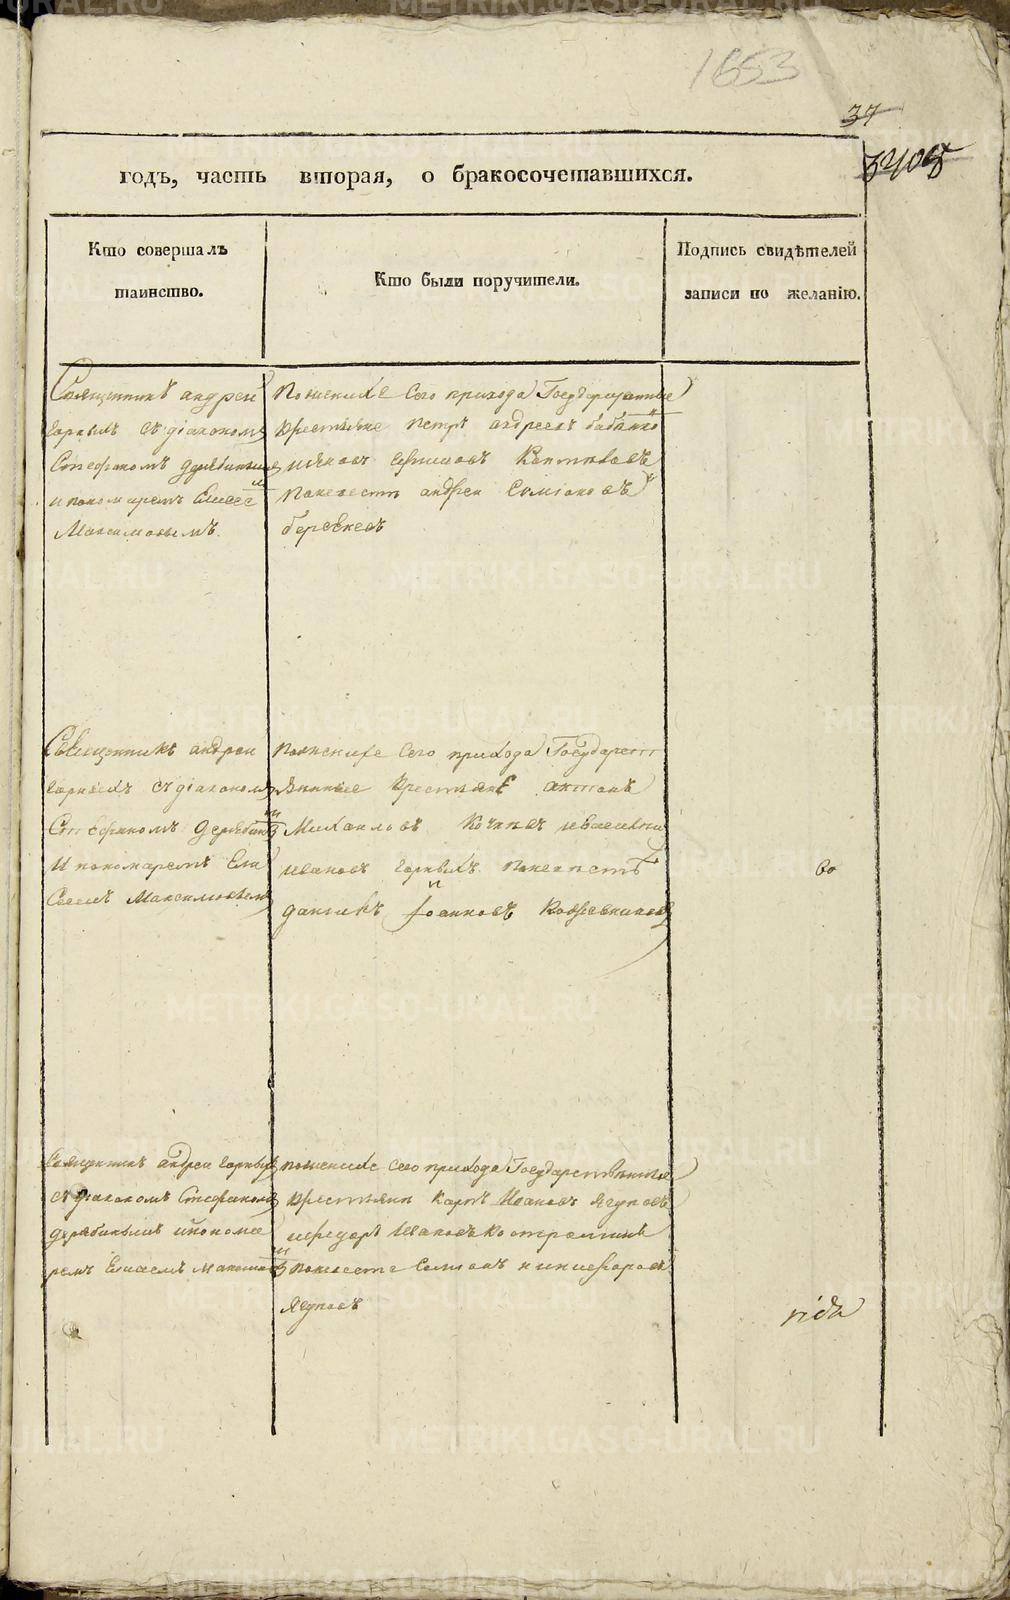 1653
37
годъ, часть вторая, о бракосочетавшихся.
Кто совершалъ
таинство.
Кто были поручители.
Подпись свидѣтелей
записи по желанію.
Священникъ андреи
горныхъ съ діакономъ
Стефаномъ дерябинымъ
и пономаремъ Елисее
Максимовымъ.
Поженихе Сего прихода Государственные
крестьяне петръ андреевъ
Поневесте андреи Симіоновъ
Священникъ андреи
горныхъ съ діакономъ
Стефаномъ дерябин
И пономаремъ Ели
Сеемъ Максимовымъ
Поженихе Сего прихода Государст
венные Крестьяне антонъ
Михаиловъ Кочневъ иВасилии
ивановъ горныхъ Поневестѣ
данилъ Іоанновъ Кожевниковъ
во
Священникъ андреи горныхъ
съ діакономъ Стефаномъ
дерябинымъ ипонома
ремъ Елисеемъ Максимов
поженихе Сего прихода Государственныя
Крестьяна карпъ Ивановъ Ягуповъ
ифедоръ Ивановъ Костроминъ
Поневесте Симионъ никифоровъ
Ягуповъ